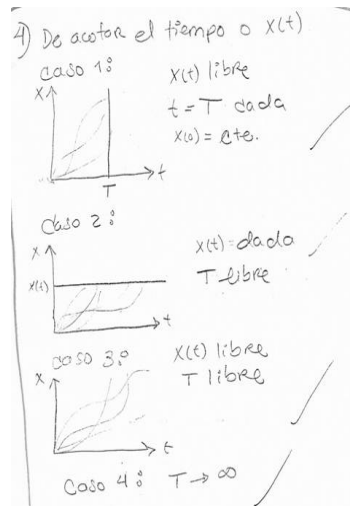 4) De acotar el tiempo o x(t)
caso 1:
x(t) libre
x
t = T dada
x(0) = cte.
t
T
Caso 2:
x
x(t) = dada
x(t)
T libre
t
caso 3:
x(t) libre
x
T libre
t
Caso 4: T → ∞